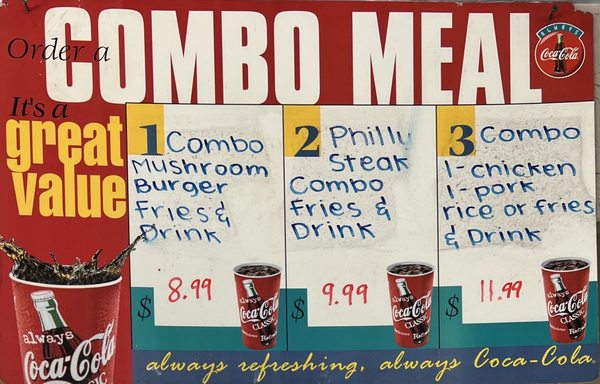 Order a
COMBO MEAL
ALWAYS
Coca-Cola
It's a
great
value
1 Combo
Mushroom
Burger
fries &
Drink
$ 8.99
2 Philly
Steak
Combo
Fries &
Drink
$ 9.99
3 Combo
1-chicken
1-pork
rice or fries
& Drink
$ 11.99
always
Coca-Cola
CLASSIC
always
Coca-Cola
CLASSIC
always
Coca-Cola
CLASSIC
always
Coca-Cola
always refreshing, always Coca-Cola.